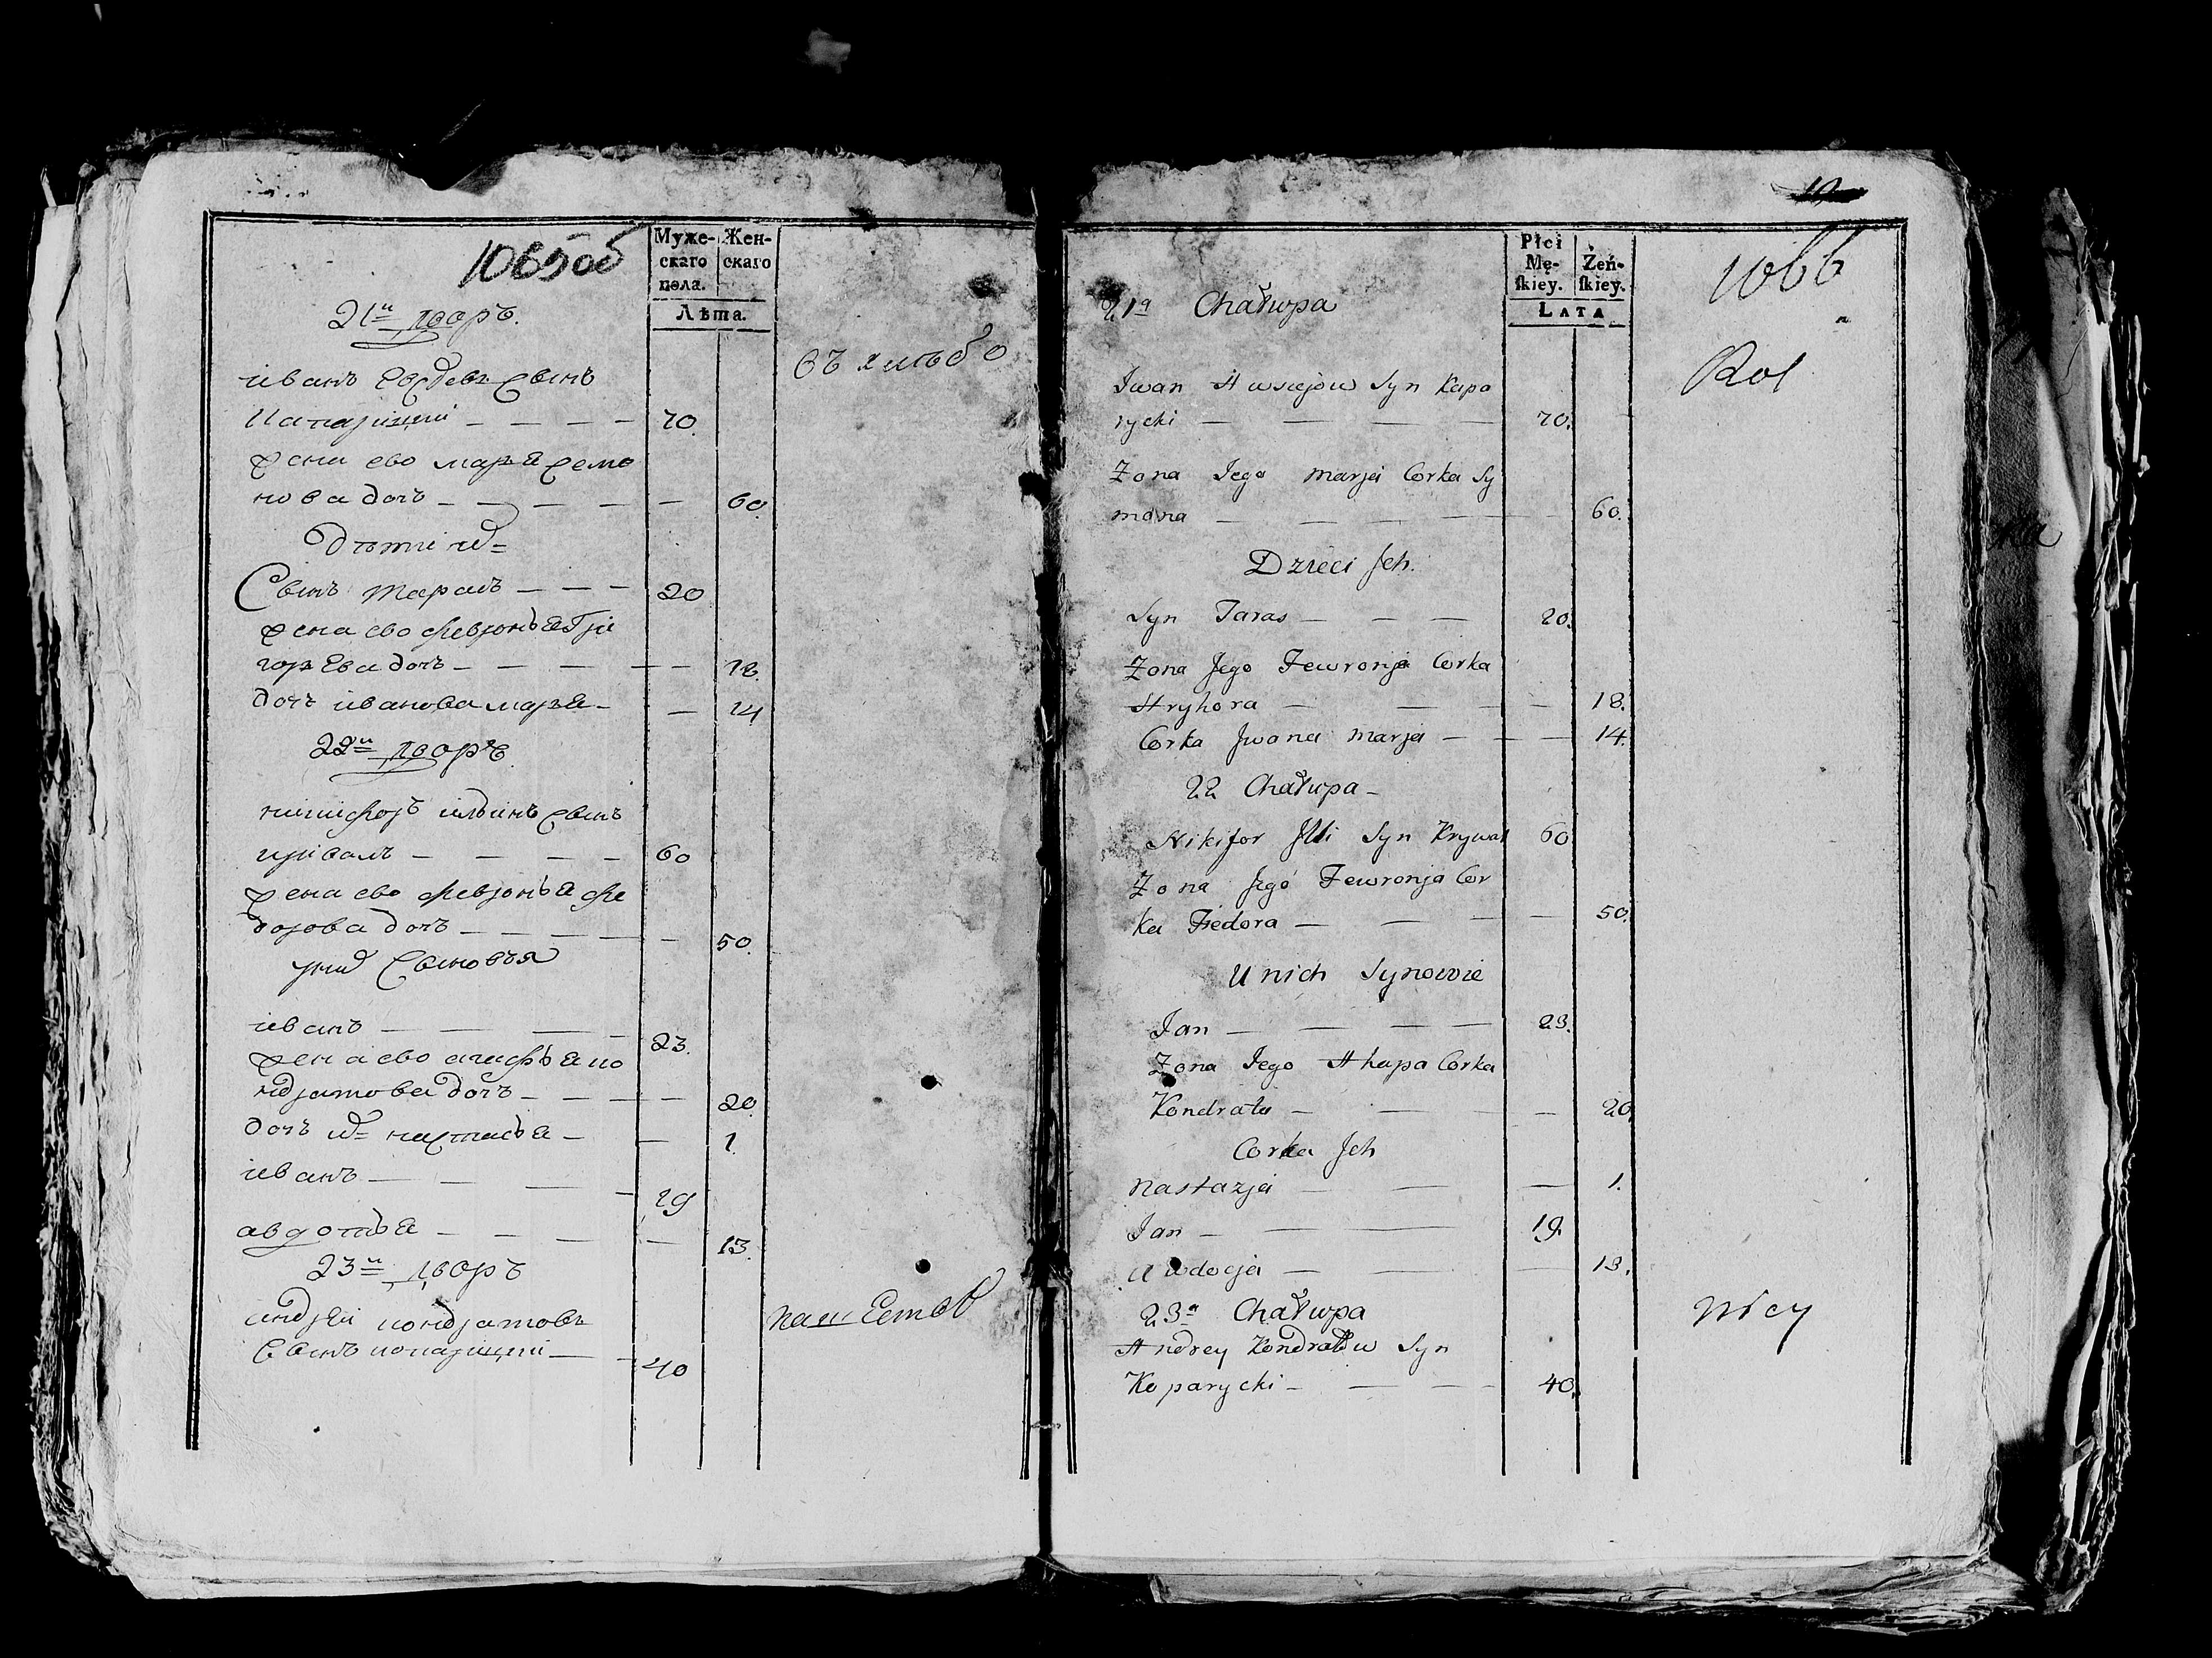 1065об
Муже-
скаго
пола.
Жен-
скаго
Лѣта.
21й дворъ.
иванъ Евсѣевъ сынъ
капарицкиі — — — — 70.
жена ево марья семо
нова дочь — — — — — 60.
дѣти их
Сынъ тарасъ — — — 20
жена ево февронья гри
горьева дочь — — — — — 18.
дочь иванова марья — — 14
22й дворъ.
никифоръ ильинъ сынъ
кривалъ — — — — 60
жена ево февронья фе
дорова дочь — — — — — 50.
у них сыновья
иванъ — — — — 23.
жена ево агафья ко
ндратова дочь — — — — 20.
дочь их настасья — — 1.
иванъ — — — — 19
авдотья — — — — — 13.
23й дворъ
андрей кондратовъ
сынъ копарицкиі — — 40
нашетов
Płci
Mę-
ſkiey.
Żeń-
ſkiey.
LATA
1066
21a Chałupa
Rol
Iwan Awsiejow Syn Kapa
rycki — — — — 70.
Zona Jego Marja Corka Sy
mona — — — — — 60.
Dzieci Jch.
Syn Taras — — — 20.
Zona Jego Fewronja Corka
Hryhora — — — — 18.
Corka Jwana Marja — — — 14.
22 Chałupa —
Nikifor Jlli Syn Krywal 60
Zona Jego Fewronja Cor
ka Fiedora — — — — 50.
U nich Synowie
Jan — — — — 23.
Zona Jego Ahapa Corka
Kondrata — — — — 20
Corka Jch
Nastazja — — — 1.
Jan — — — 19.
Awdocja — — — 13.
23a Chałupa
Andrey Kondratow Syn
Koparycki — — — 40.